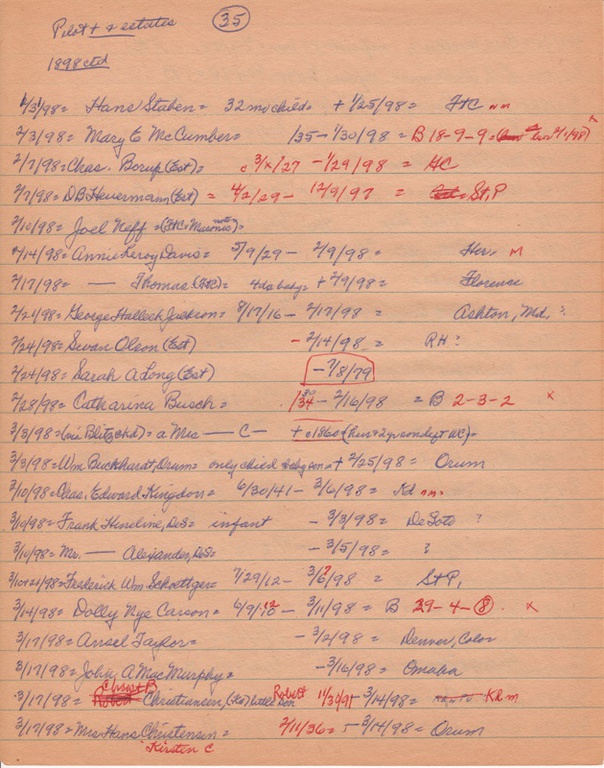 Pilot + & estates (35)
1898 ctd
1/31/98 = Hans Stuben = 32 mo child = + 1/25/98 = FtC nm
2/3/98 = Mary E McCumber = 1/35 - 1/30/98 = B 18-9-9 = x
2/7/98 = Chas. Borup (Est) = c 3/x/27 - 1/29/98 = HC
2/7/98 = DB Heuermann (Est) = 4/2/29 - 12/9/97 = St. P
2/10/98 = Joel Neff = (FtC = Masonic notes) =
2/14/98 = Annie Leroy Davis = 5/9/29 - 2/9/98 = Her. m
2/17/98 = — Thomas (FtC) = 4 da baby = + 2/9/98 = Florence
2/21/98 = George Halleck Jackson = 8/17/16 - 2/17/98 = Ashton, Md. ?
2/24/98 = Swan Olson (Est) - 2/14/98 = RH ?
2/24/98 = Sarah A Long (Est) - 7/8/79
2/28/98 = Catharina Busch = 1/34 30 - 2/16/98 = B 2-3-2 x
3/3/98 = (via Blitz ctd) = a Mrs — C — + c1860 =
3/3/98 = Wm Buckhardt, Orum = only child baby son = + 2/25/98 = Orum
3/10/98 = Chas. Edward Kingdon = 6/30/41 - 3/6/98 = Kd nm.
3/10/98 = Frank Heneline, DeS = infant - 3/3/98 = DeSoto ?
3/10/98 = Mr. — Alexander, DeS = - 3/5/98 = ?
3/10+21/98 = Frederick Wm Schoettger = 7/29/12 - 3/6/98 ? = St P,
3/14/98 = Dolly Nye Carson = 6/9/10 12 - 3/11/98 = B 29-4-(8) . x
3/17/98 = Ansel Taylor = - 3/2/98 = Denver, Color
3/17/98 = John A MacMurphy = - 3/16/98 = Omaha
3/17/98 = Robert Christ B Christiansen, little son Robert 11/30/91 - 3/14/98 = KRm
3/17/98 = Mrs Hans Christensen = 2/11/36 = - 3/14/98 = Orum
Kirsten C